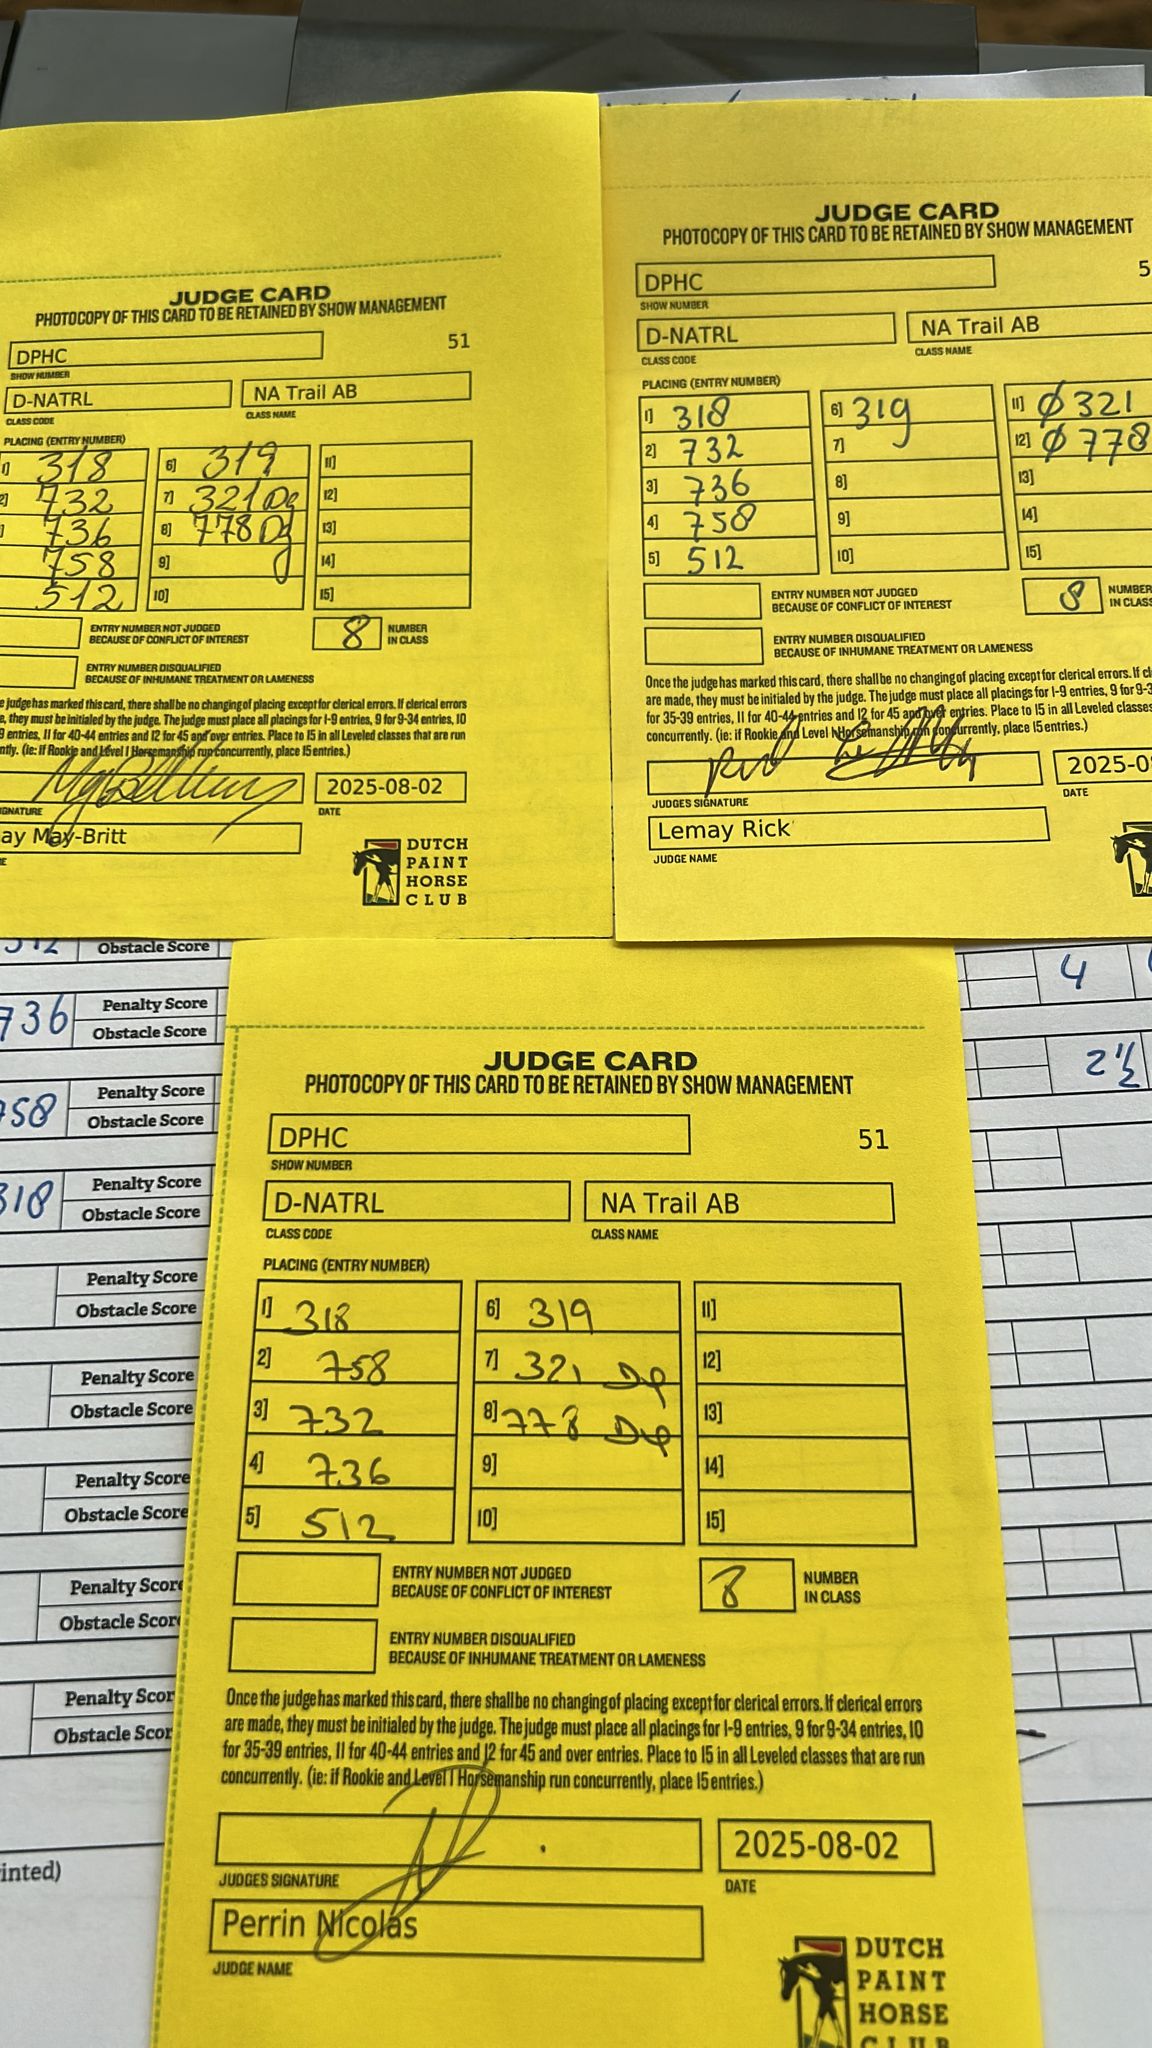 JUDGE CARD
PHOTOCOPY OF THIS CARD TO BE RETAINED BY SHOW MANAGEMENT
DPHC 51
SHOW NUMBER
D-NATRL NA Trail AB
CLASS CODE CLASS NAME
PLACING (ENTRY NUMBER)
1] 318 6] 319 11]
2] 732 7] 321 Dq 12]
] 736 8] 778 Dq 13]
758 9] 14]
512 10] 15]
ENTRY NUMBER NOT JUDGED
BECAUSE OF CONFLICT OF INTEREST
8 NUMBER
IN CLASS
ENTRY NUMBER DISQUALIFIED
BECAUSE OF INHUMANE TREATMENT OR LAMENESS
e judge has marked this card, there shall be no changing of placing except for clerical errors. If clerical errors
e, they must be initialed by the judge. The judge must place all placings for 1-9 entries, 9 for 9-34 entries, 10
9 entries, 11 for 40-44 entries and 12 for 45 and over entries. Place to 15 in all Leveled classes that are run
ntly. (ie: if Rookie and Level 1 Horsemanship run concurrently, place 15 entries.)
2025-08-02
IGNATURE DATE
ay May-Britt
E
DUTCH
PAINT
HORSE
CLUB
JUDGE CARD
PHOTOCOPY OF THIS CARD TO BE RETAINED BY SHOW MANAGEMENT
DPHC 5
SHOW NUMBER
D-NATRL NA Trail AB
CLASS CODE CLASS NAME
PLACING (ENTRY NUMBER)
1] 318 6] 319 11] Ø 321
2] 732 7] 12] Ø 778
3] 736 8] 13]
4] 758 9] 14]
5] 512 10] 15]
ENTRY NUMBER NOT JUDGED
BECAUSE OF CONFLICT OF INTEREST
8 NUMBER
IN CLASS
ENTRY NUMBER DISQUALIFIED
BECAUSE OF INHUMANE TREATMENT OR LAMENESS
Once the judge has marked this card, there shall be no changing of placing except for clerical errors. If cle
are made, they must be initialed by the judge. The judge must place all placings for 1-9 entries, 9 for 9-3
for 35-39 entries, 11 for 40-44 entries and 12 for 45 and over entries. Place to 15 in all Leveled classes
concurrently. (ie: if Rookie and Level 1 Horsemanship run concurrently, place 15 entries.)
2025-0
JUDGES SIGNATURE DATE
Lemay Rick
JUDGE NAME
512 Obstacle Score
736 Penalty Score
Obstacle Score
758 Penalty Score
Obstacle Score
318 Penalty Score
Obstacle Score
Penalty Score
Obstacle Score
Penalty Score
Obstacle Score
Penalty Score
Obstacle Score
Penalty Score
Obstacle Score
Penalty Scor
Obstacle Scor
inted)
4
2½
JUDGE CARD
PHOTOCOPY OF THIS CARD TO BE RETAINED BY SHOW MANAGEMENT
DPHC 51
SHOW NUMBER
D-NATRL NA Trail AB
CLASS CODE CLASS NAME
PLACING (ENTRY NUMBER)
1] 318 6] 319 11]
2] 758 7] 321 Dq 12]
3] 732 8] 778 Dq 13]
4] 736 9] 14]
5] 512 10] 15]
ENTRY NUMBER NOT JUDGED
BECAUSE OF CONFLICT OF INTEREST
8 NUMBER
IN CLASS
ENTRY NUMBER DISQUALIFIED
BECAUSE OF INHUMANE TREATMENT OR LAMENESS
Once the judge has marked this card, there shall be no changing of placing except for clerical errors. If clerical errors
are made, they must be initialed by the judge. The judge must place all placings for 1-9 entries, 9 for 9-34 entries, 10
for 35-39 entries, 11 for 40-44 entries and 12 for 45 and over entries. Place to 15 in all Leveled classes that are run
concurrently. (ie: if Rookie and Level 1 Horsemanship run concurrently, place 15 entries.)
2025-08-02
JUDGES SIGNATURE DATE
Perrin Nicolas
JUDGE NAME
DUTCH
PAINT
HORSE
CLUB